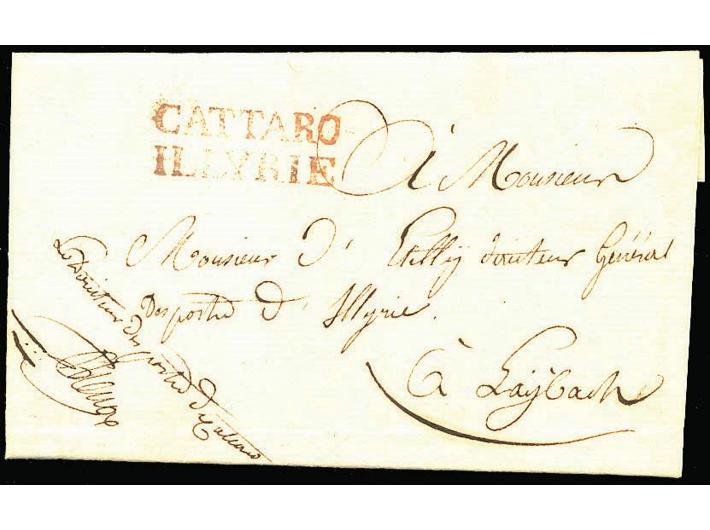 CATTARO
ILLYRIE
à Monsieur
Monsieur D' directeur Général
Des postes D' Illyrie.
à Laÿbach
Le Directeur des postes de Cattaro